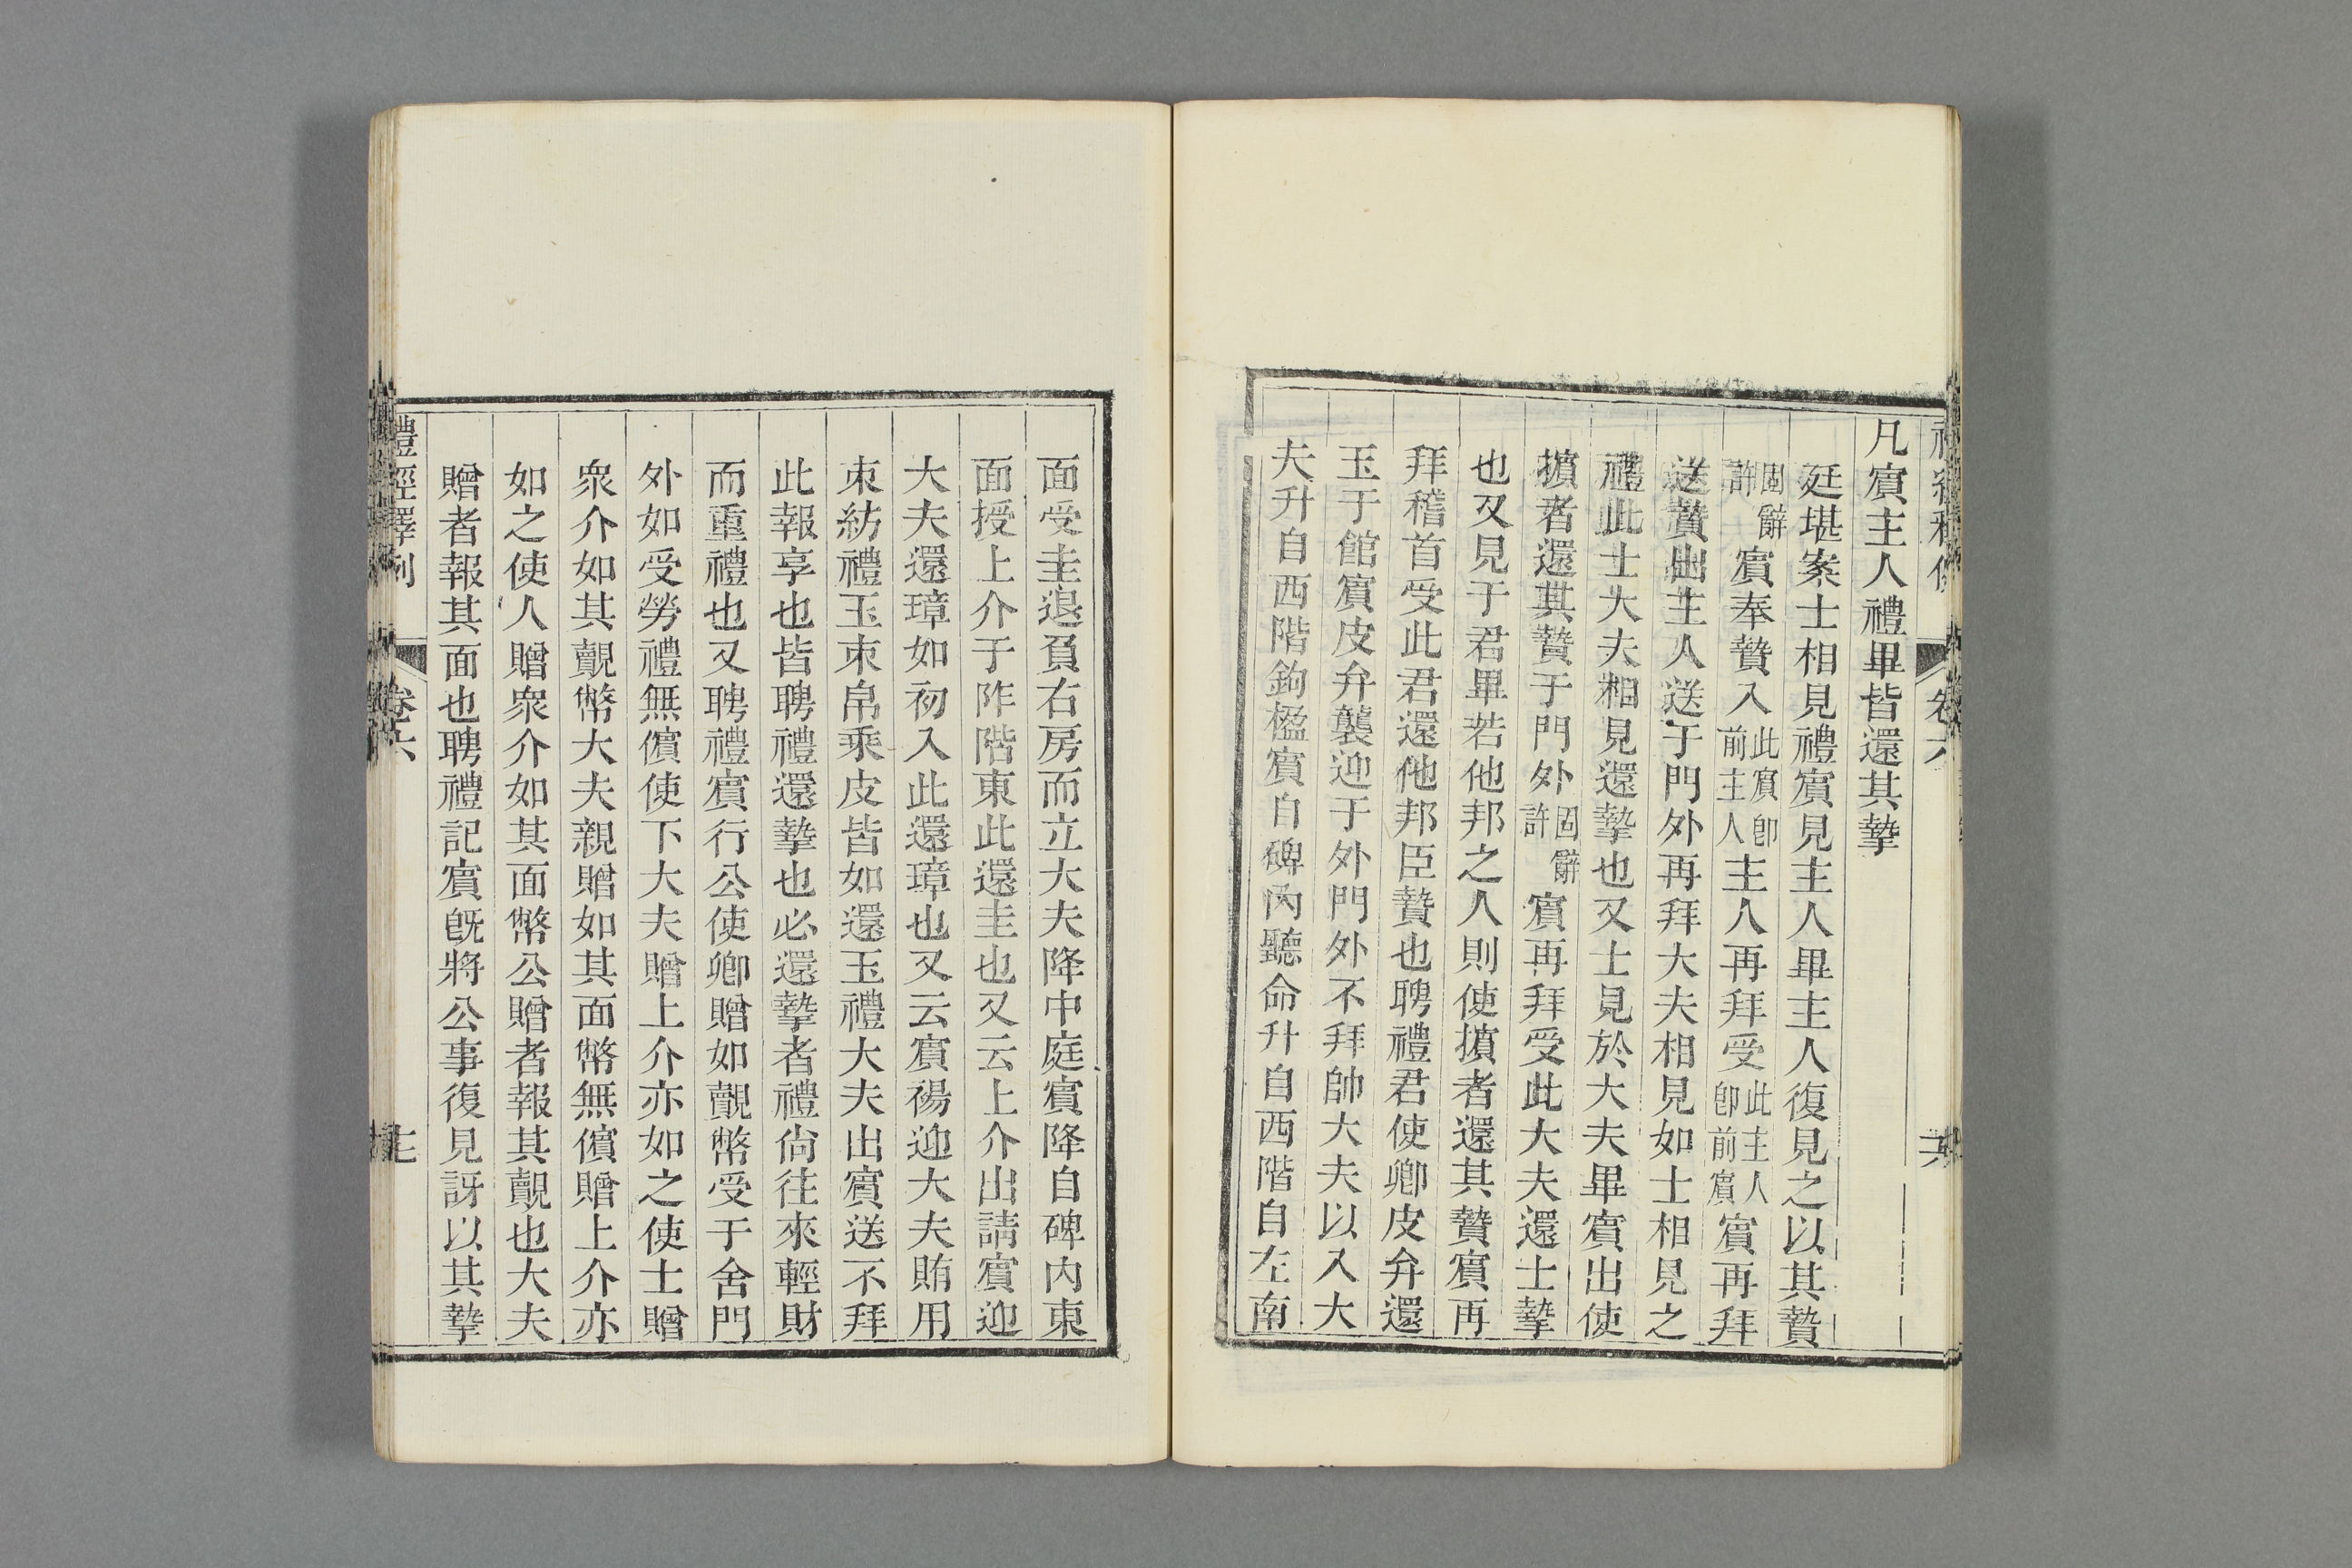 凡賓主人禮畢皆還其摯
廷堪案士相見禮賓見主人畢主人復見之以其贄
固辭許賓奉贄入此賓卽前主人主人再拜受此主人卽前賓賓再拜
送贄出主人送于門外再拜大夫相見如士相見之
禮此士大夫相見還摯也又士見於大夫畢賓出使
擯者還其贄于門外固辭許賓再拜受此大夫還士摯
也又見于君畢若他邦之人則使擯者還其贄賓再
拜稽首受此君還他邦臣贄也聘禮君使卿皮弁還
玉于館賓皮弁襲迎于外門外不拜帥大夫以入大
夫升自西階鉤楹賓自碑內聽命升自西階自左南
面受圭退負右房而立大夫降中庭賓降自碑內東
面授上介于阼階東此還圭也又云上介出請賓迎
大夫還璋如初入此還璋也又云賓裼迎大夫賄用
束紡禮玉束帛乘皮皆如還玉禮大夫出賓送不拜
此報享也皆聘禮還摯也必還摯者禮尙往來輕財
而重禮也又聘禮賓行公使卿贈如覿幣受于舍門
外如受勞禮無儐使下大夫贈上介亦如之使士贈
衆介如其覿幣大夫親贈如其面幣無儐贈上介亦
如之使人贈衆介如其面幣公贈者報其覿也大夫
贈者報其面也聘禮記賓旣將公事復見訝以其摯
禮經釋例
卷六